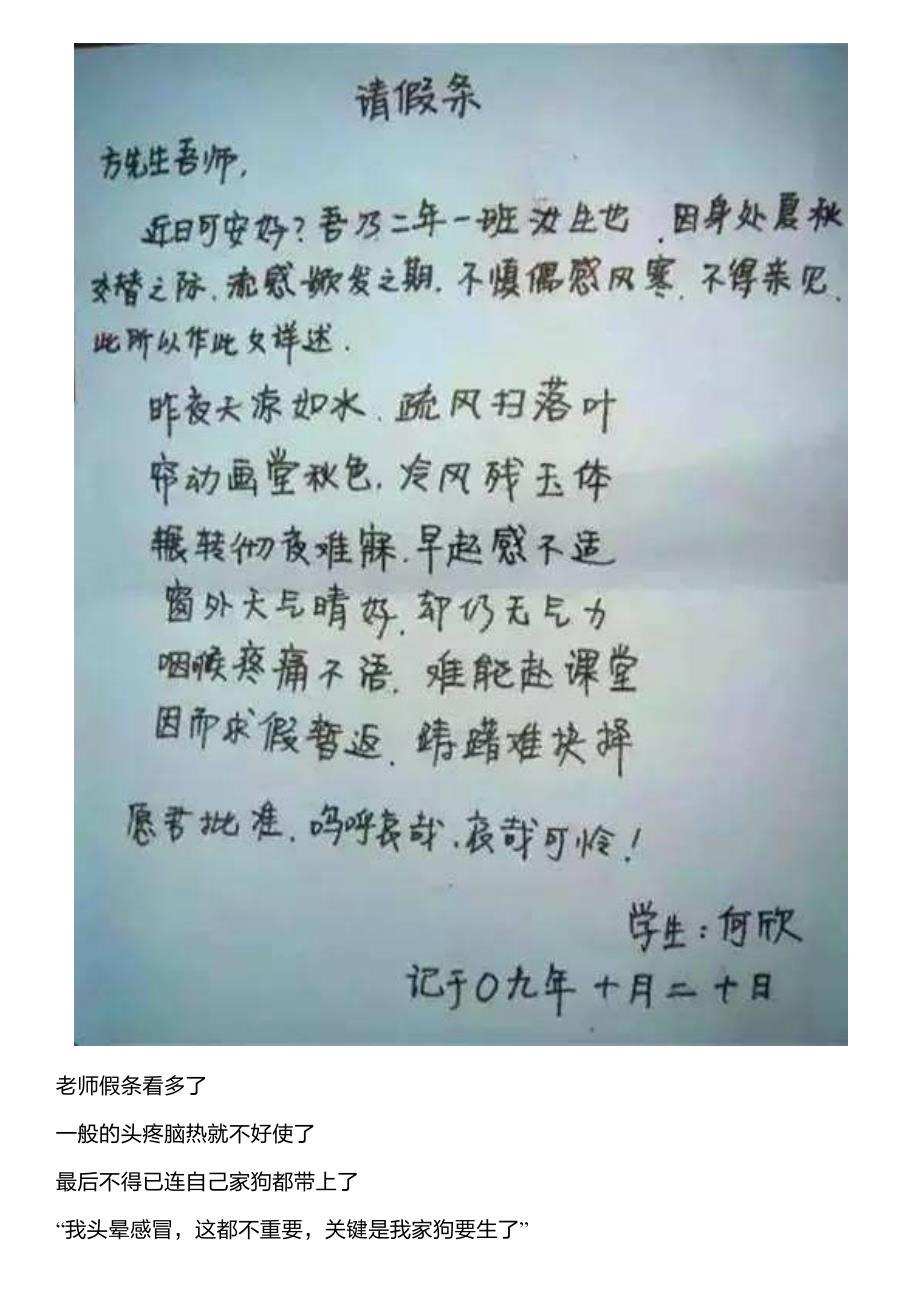 请假条
方先生吾师,
近日可安好?吾乃二年一班汝生也,因身处夏秋
交替之际,流感掀发之期,不慎偶感风寒,不得亲见,
此所以作此文详述.
昨夜天凉如水,疏风扫落叶
帘动画堂秋色,冷风残玉体
辗转彻夜难寐,早起感不适
窗外天气晴好,却仍无气力
咽喉疼痛不语,难能赴课堂
因而求假暂返,踌躇难抉择
愿君批准,呜呼哀哉,哀哉可怜!
学生:何欣
记于0九年十月二十日
老师假条看多了
一般的头疼脑热就不好使了
最后不得已连自己家狗都带上了
“我头晕感冒，这都不重要，关键是我家狗要生了”